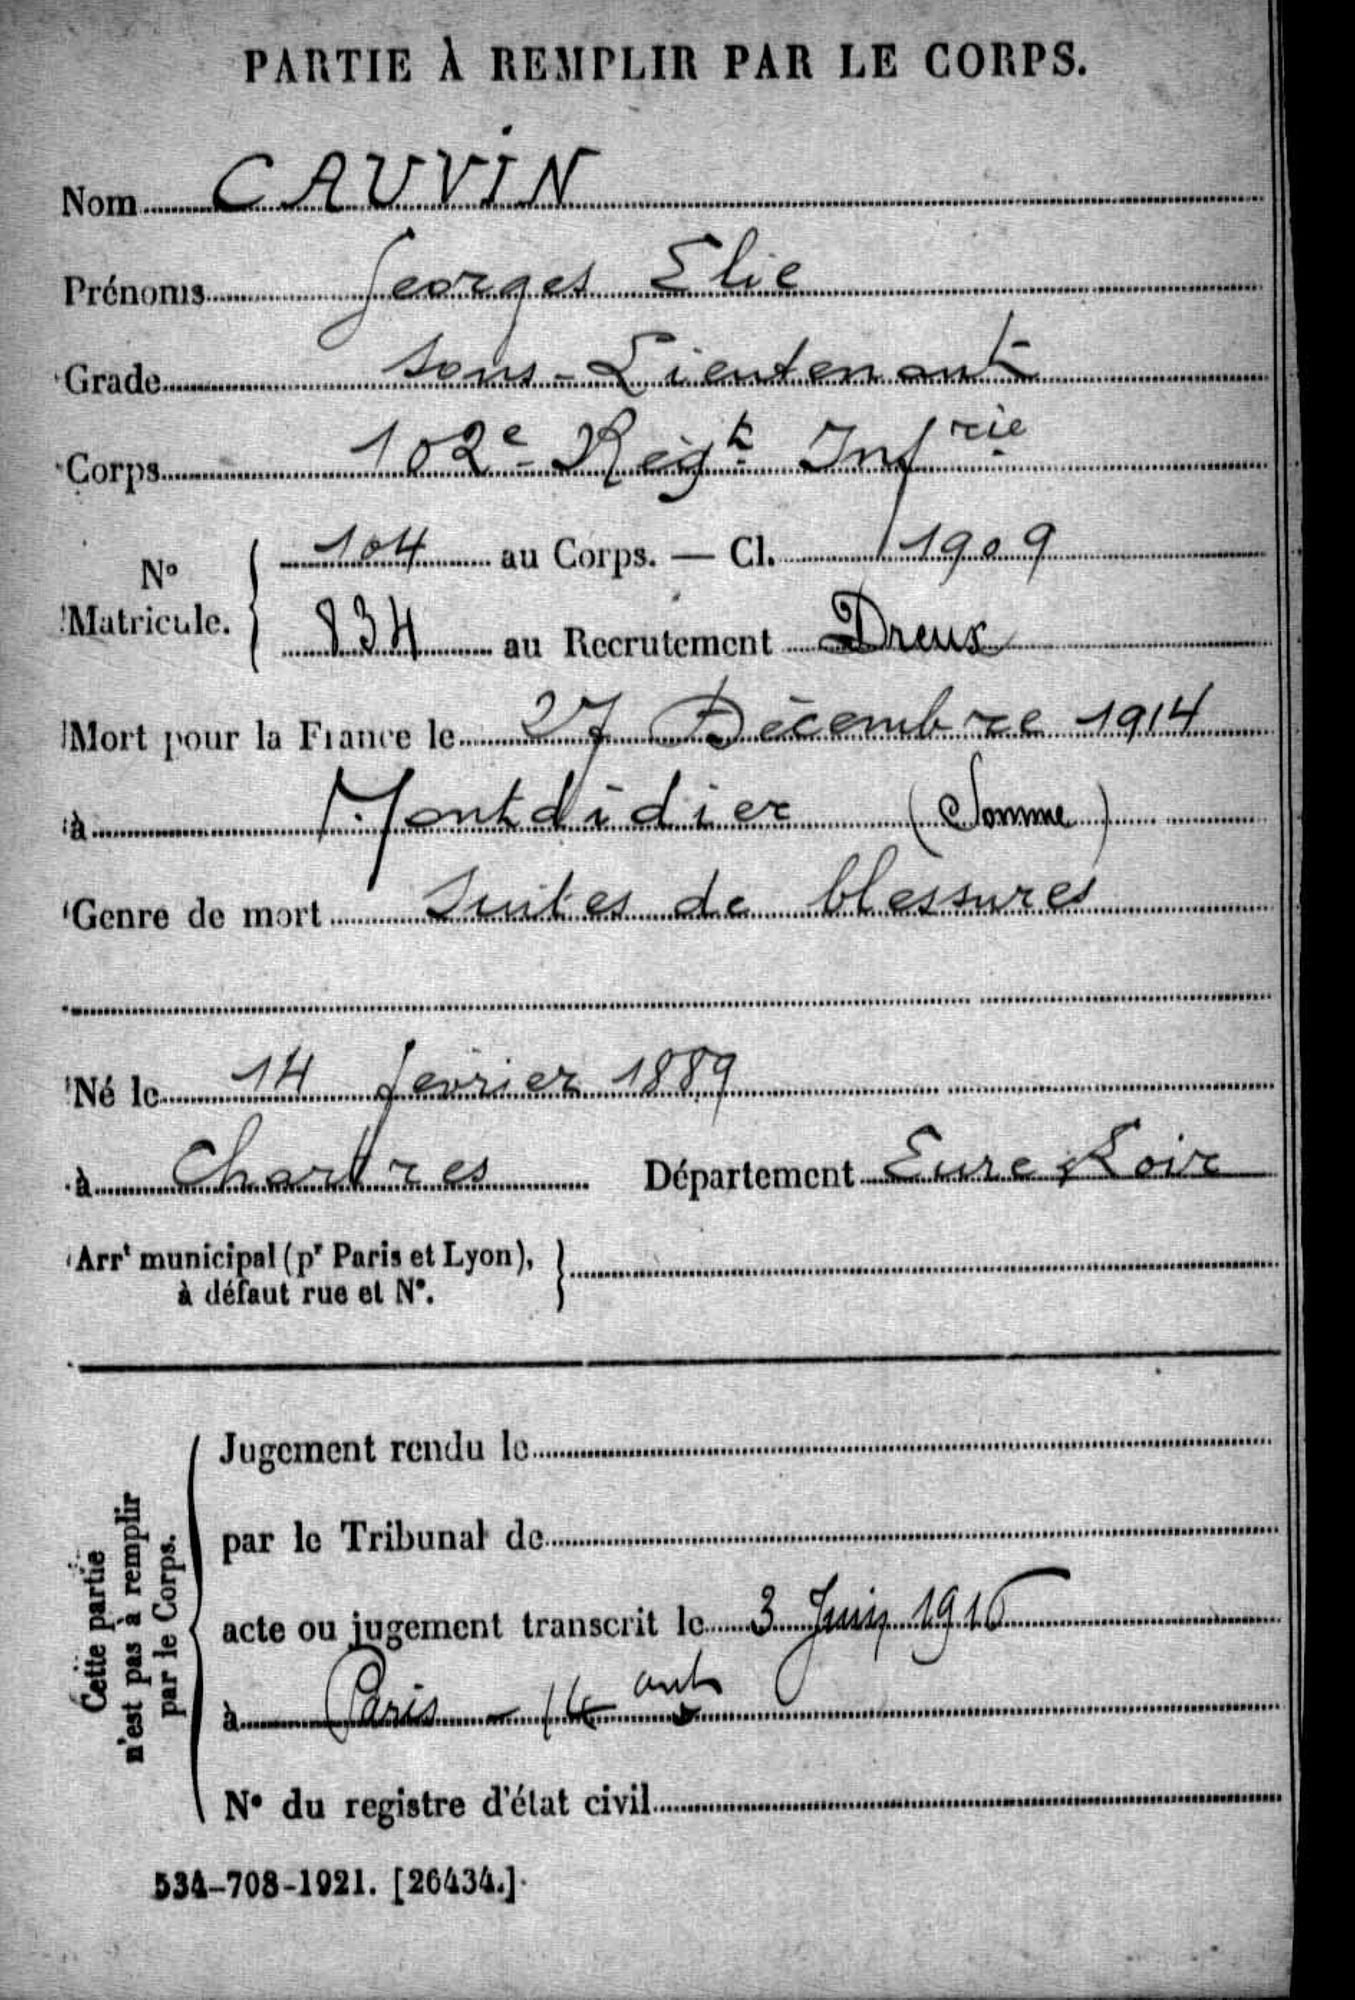 PARTIE À REMPLIR PAR LE CORPS.
Nom CAUVIN
Prénoms Georges Elie
Grade Sous-Lieutenant
Corps 102e Régt Infrie
No Matricule. { 104 au Corps. — Cl. 1909
834 au Recrutement Dreux
Mort pour la France le 27 Décembre 1914
à Montdidier (Somme)
Genre de mort Suites de blessures
Né le 14 février 1889
à Chartres Département Eure & Loir
Arrt municipal (pr Paris et Lyon), }
à défaut rue et No.
Cette partie
n'est pas à remplir
par le Corps.
Jugement rendu le
par le Tribunal de
acte ou jugement transcrit le 3 Juin 1916
à Paris - 14 arrt
No du registre d'état civil
534-708-1921. [26434.]